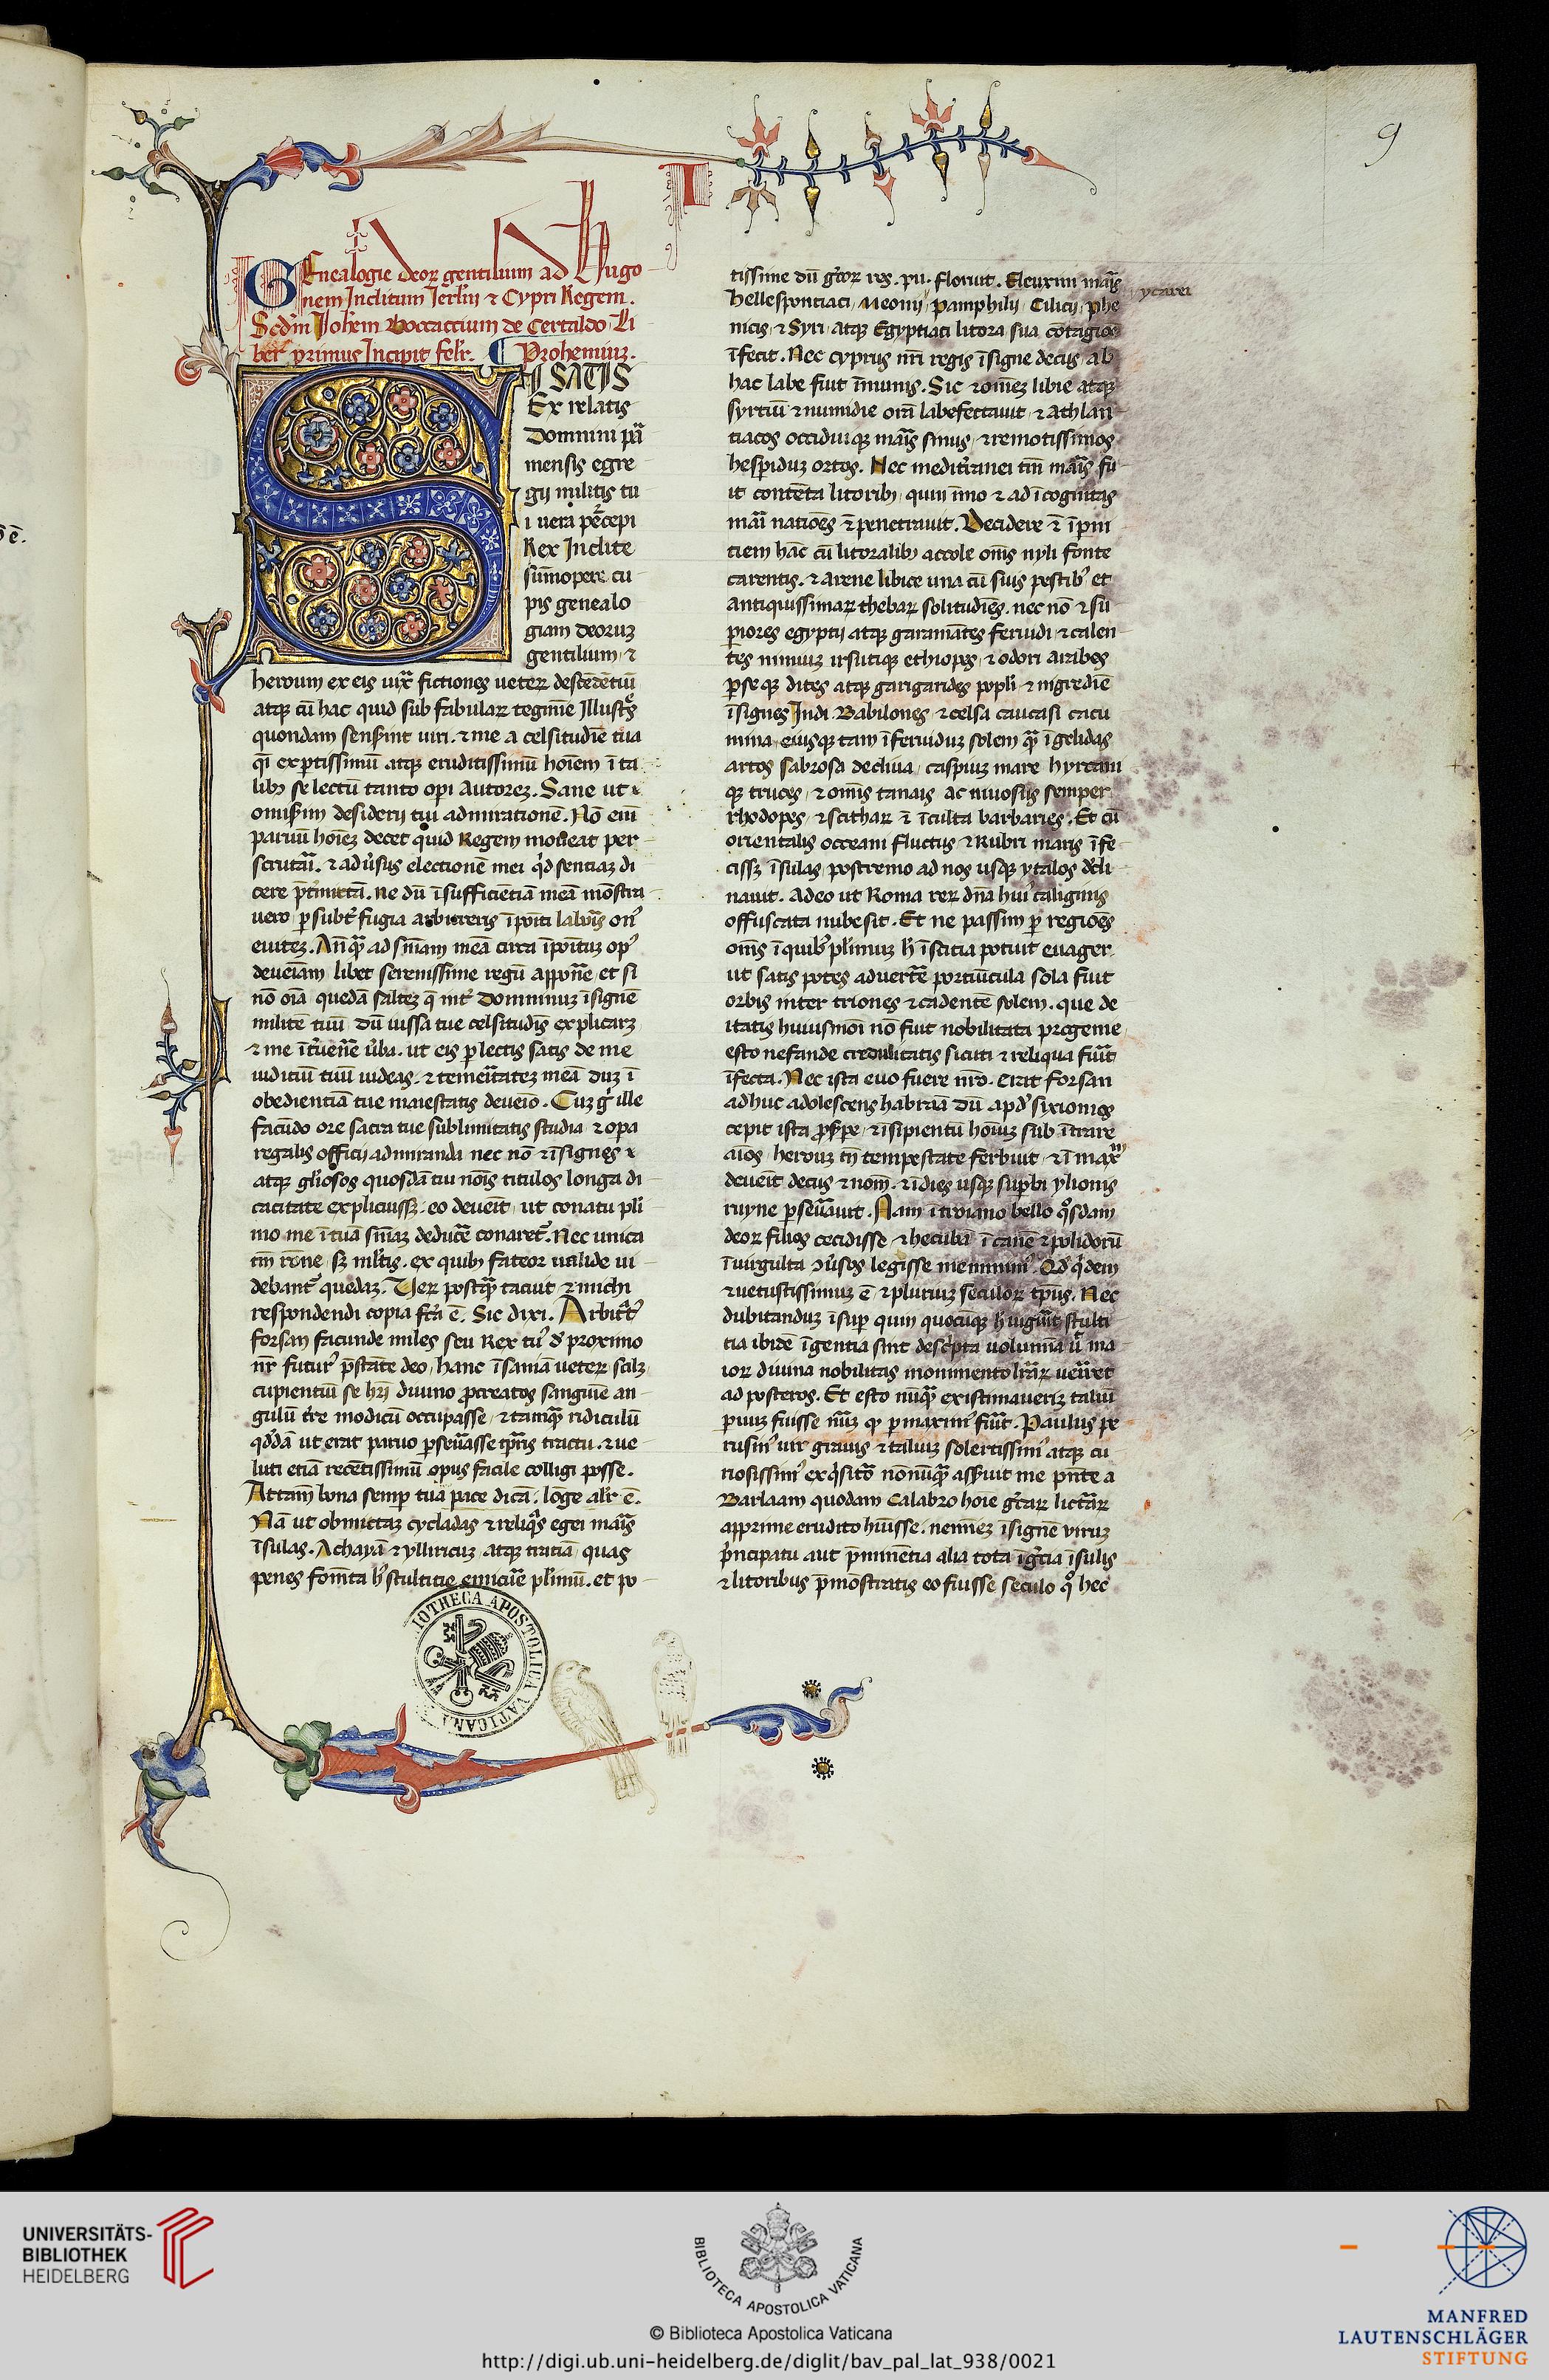 9
I
GEnealogie deoꝝ gentilium ad Hugo
nem Inclitum Ierlꝫ ⁊ Cypri Regem.
Scdꝫ Ioħem Boccaccium de Certaldo Li
ber primus Incipit felr. ¶ Prohemiuꝫ.
SI SATIS
Ex relatis
Domnini pã
mensis egre
gij militis tu
i uera ꝑcepi
Rex Inclite
sũmopere cu
pis genealo
giam deoruꝫ
gentilium ⁊
heroum ex eis iuxͣ fictiones ueteꝝ descẽdẽtiũ
atqꝫ cũ hac quid sub fabulaꝝ tegmĩe Illustrẽs
quondam senserint uiri. ⁊ me a celsitudĩe tua
qͣsi expertissimũ atqꝫ eruditissimũ hoĩem ĩ ta
libꝫ selectũ tanto oꝑi Autoreꝫ. Sane ut
omiserim desiderij tui admirationẽ. Nõ eni
paruũ hoĩeꝫ decet quid Regem moueat per
scrutari. ⁊ aduersus electionẽ mei qͥd sentiaꝫ di
cere p̃termittã. ne dũ ĩsufficiẽtiã meã mõstra
uero ꝑ subterfugia arbitreris ĩpositi laboris onꝰ
euiteꝫ. Anqͣꝫ ad sñiam meã circa ĩpositũ opꝰ
deueiam libet serenissime regũ apponẽ et si
nõ oĩa quedã salteꝫ q̃ int̃ Domninuꝫ ĩsignẽ
militẽ tuũ dũ iussa tue celsitudĩs explicaꝫ
⁊ me ĩteruenẽ uerba. ut eis ꝑlectis satis de me
iuditiũ tuũ uideas. ⁊ temeritateꝫ meã duꝫ ĩ
obedientiã tue maiestatis deueio. Cuꝫ gͦ ille
facũdo ore sacra tue sublimitatis studia ⁊ opa
regalis officij admiranda nec nõ ⁊ ĩsignes
atqꝫ gliosos quosdã tui nõis titulos longa di
cacitate explicuissꝫ. eo deueit, ut conatu pli
mo me ĩ tuã sñiaꝫ deducẽ conaret̃. Nec unica
tm̃ rõne sꝫ ml̃tis. ex quibꝫ fateor ualide ui
debant̃ quedaꝫ. Veꝝ postqͣꝫ tacuit ⁊ michi
respondendi copia fcã ẽ. Sic dixi. Arbitrͣis
forsan facunde miles seu Rex tuꝰ de proximo
nr̃ futurꝰ p̃stãte deo, hanc ĩsaniã ueteꝝ scilꝫ
cupientiũ se hr̃i diuino ꝓcreatos sanguĩe an
gulũ tr̃e modicũ occupasse, ⁊ tamqͣꝫ ridiculũ
qd̃dã ut erat paruo ꝑseuerasse tꝑis tractu. ⁊ ue
luti etiã recẽtissimũ opus facile colligi posse.
Attam̃ bona semꝑ tua pace dicã. lõge alr̃ ẽ.
Nã ut obmictaꝫ cycladas ⁊ reliqͣs egei maris
ĩsulas. Achayã ⁊ ylliricuꝫ atqꝫ traciã quas
penes fomẽta hꝰ stultitie enicuẽ plimũ. et po
tissime dũ gr̃coꝝ res. pu. floruit. Eleuxini maris
hellespontiaci, Meonij, Pamphilij, Cilicij, Phe
nicis, ⁊ Syri, atqꝫ Egyptiaci litora sua cõtagiõe
ĩfecit. Nec cyprus nr̃i regis ĩsigne decus ab
hac labe fuit ĩmunis. Sic ⁊ om̃eꝫ libie atqꝫ
syrtiũ ⁊ numidie orã labefectauit ⁊ athlan
tiacos occiduiqꝫ maris sinus, ⁊ remotissimos
hesperiduꝫ ortos. Nec mediterranei tm̃ maris fu
it contẽta litoribꝫ, quin ĩmo ⁊ ad ĩcognitas
mari natiões ẽ penetrauit. Decidere ẽ ĩ pni
tiem hãc cũ litoralibꝫ accole om̃s nyli fonte
carentis, ⁊ arene libice una cũ suis pestibꝰ et
antiquissimaꝝ thebaꝝ solitudĩes. nec nõ ⁊ su
periores egyptij atqꝫ garamãtes feruidi ⁊ calen
tes nimiuꝫ irsutiqꝫ ethiopes, ⁊ odori arabes
perseqꝫ dites atqꝫ gangarides popli ⁊ nigrediẽ
ĩsignes Indi. Babilones ⁊ celsa caucasi cacu
mina eiusqꝫ tam ĩ feruiduꝫ solem qͣꝫ ĩ gelidas
artos sabrosa decliua, caspiuꝫ mare hyrcani
qꝫ truces, ⁊ om̃is tanais ac niuosus semper
rhodopes, ⁊ scithaꝝ ẽ ĩculta barbaries. Et cũ
orientalis occeani fluctus ⁊ Rubri maris ĩfe
cissꝫ ĩsulas, postremo ad nos usqꝫ ytalos decli
nauit. Adeo ut Roma reꝝ dñã huiꝰ caliginis
offuscata nube sit. Et ne passim ꝑ regiões
om̃s ĩ quibꝰ plimuꝫ hꝰ ĩscitia potuit euager
ut satis potes aduertẽ portiũcula sola fuit
orbis inter triones ⁊ cadentẽ solem. que de
itatis huiusmõi nõ fuit nobilitata progenie
esto nefande credulitatis sicuti ⁊ reliqua fuerit
ĩfecta. Nec ista euo fuere nr̃o. Erat forsan
adhuc adolescens habraã dũ apdꝰ sixionios
cepit ista ꝓserpe, ⁊ ĩsipientũ hoĩuꝫ sub ĩtrare
aĩos, heroiuꝫ tñ tempestate ferbuit ⁊ ĩ maxͫ
deueit decus ⁊ nom̃. ⁊ ĩ dies usqꝫ suꝑbi ylionis
ruyne ꝑseuerauit. Nam ĩ troiano bello qͦsdam
deoꝝ filios cecidisse ⁊ hecubã ĩ canẽ ⁊ polidorũ
ĩ uirgulta ɔuersos legisse meminimꝰ. Qd̃ qͥdem
⁊ uetustissimuꝫ ẽ ⁊ pluriuꝫ seculoꝝ tp̃us. Nec
dubitanduꝫ ĩsuꝑ quin quocũqꝫ hꝰ uiguerit stulti
tia ibidẽ ĩgentia sint descͥpta uolumĩa ut ma
ior diuina nobilitas monimento lr̃aꝝ ueniret
ad posteros. Et esto nũqͣꝫ existimaueriꝫ taliũ
paruuꝫ fuisse nũeꝝ qꝫ ꝑmaximꝰ fuerit. Paulus pe
rusinꝰ uir grauis ⁊ taliuꝫ solertissimꝰ atqꝫ cu
riosissimꝰ exqͥsitor nõnũqͣꝫ asseruit me pñte a
Barlaam quodam Calabro hoie gr̃caꝝ lictãꝝ
apprime erudito hũisse. neminẽ ĩsignẽ viruꝫ
prĩcipatu aut p̃minẽtia alia tota ĩ grẽcia ĩsulis
⁊ litoribus p̃mõstratis eo fuisse seculo qͦ hec
BIBLIOTHECA APOSTOLICA VATICANA
UNIVERSITÄTS-
BIBLIOTHEK
HEIDELBERG
BIBLIOTECA APOSTOLICA VATICANA
© Biblioteca Apostolica Vaticana
http://digi.ub.uni-heidelberg.de/diglit/bav_pal_lat_938/0021
MANFRED
LAUTENSCHLÄGER
STIFTUNG